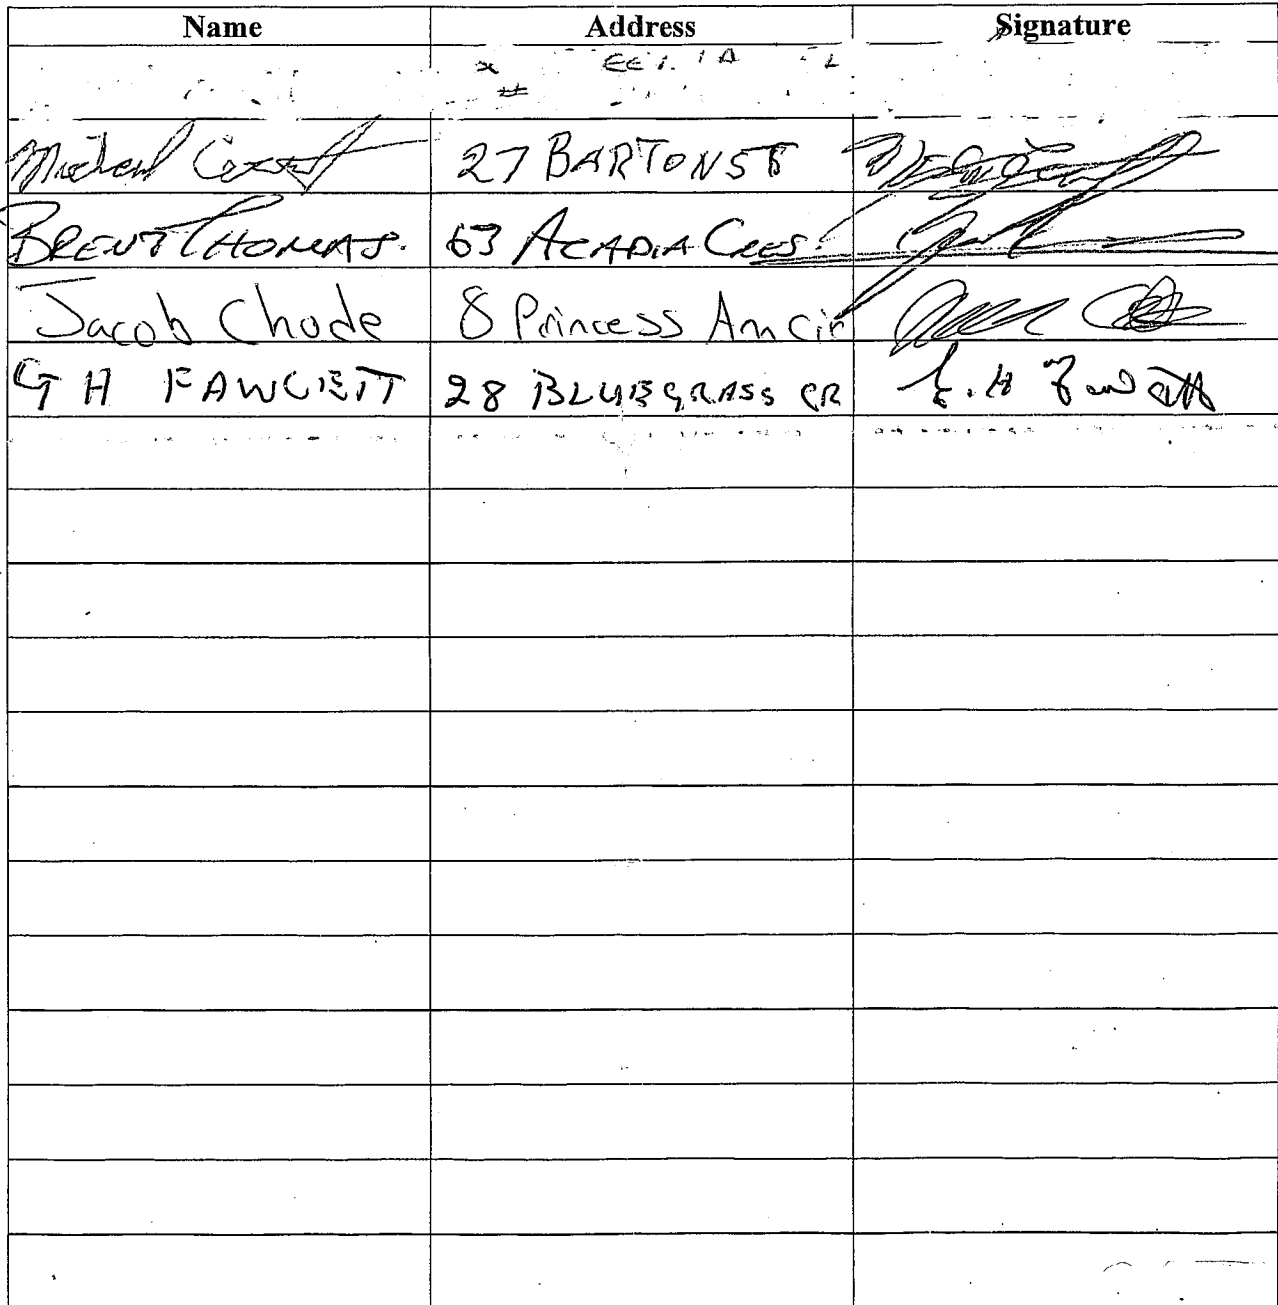 Name Address Signature
Michael 27 BARTON ST
BRENT THOMAS. 63 ACADIA CRES.
Jacob Chode 8 Princess Ann Cir
G H FAWCETT 28 BLUEGRASS CR G. H Fawcett